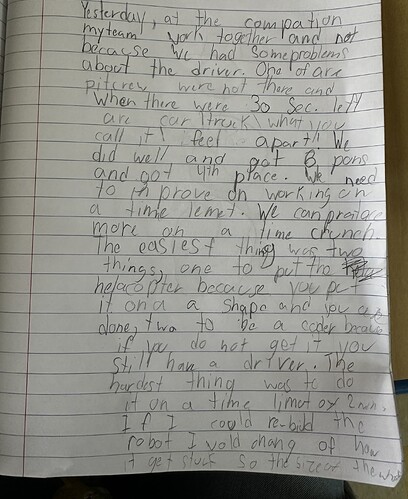 Yesterday, at the compation
my team work together and not
because we had some problems
about the driver. One of are
pitcrew were not there and
when there were 30 sec. left
are car (truck\ what you
call it\ feel apart!! We
did well and got 8 pons
and got 4th place. We need
to improve on working on
a time lemet. We can pratore
more on a time crunch.
The easiest thing was two
things, one to put the
helacopter because you put
it on a shape and you are
done, two to be a coder becaus
if you do not get it you
still have a driver. The
hardest thing was to do
it on a time limot of 2 min.
If I could re-build the
robot I wold chang of how
it get stuck so the size of the